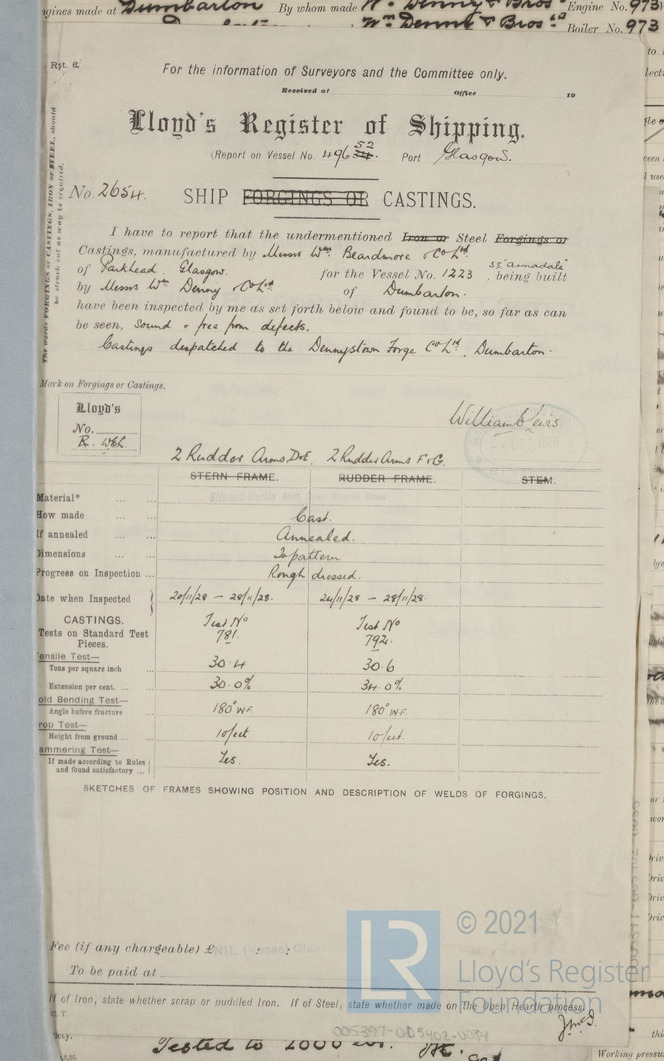 gines made at Dumbarton By whom made Wm Denny & Bros Engine No. 973
Wm Denny & Bros Ltd Boiler No. 973
Rpt. 6
For the information of Surveyors and the Committee only.
Received at Office 19
Lloyd's Register of Shipping.
(Report on Vessel No. 49652. Port Glasgow.
The words FORGINGS or CASTINGS, IRON or STEEL, should
be struck out as may be required.
No. 2654. SHIP FORGINGS OR CASTINGS.
I have to report that the undermentioned Iron or Steel Forgings or
Castings, manufactured by Messrs Wm Beardmore & Co Ltd
of Parkhead, Glasgow. for the Vessel No. 1223 SS "Annadale", being built
by Messrs Wm Denny & Co Ltd of Dumbarton.
have been inspected by me as set forth below and found to be, so far as can
be seen, sound & free from defects.
Castings despatched to the Dennystown Forge Co Ltd, Dumbarton.
Mark on Forgings or Castings.
Lloyd's
No.
R.
William Weir
2 Rudder Arms, D&E. 2 Rudder Arms F&G.
STERN FRAME. RUDDER FRAME. STEM.
Material* ... ...
How made ... ... Cast.
If annealed ... ... Annealed.
Dimensions ... ... To pattern
Progress on Inspection ... Rough dressed.
Date when Inspected 20/11/28 – 28/11/28. 24/11/28 – 28/11/28.
CASTINGS.
Tests on Standard Test Pieces. Test No 781. Test No 792.
ensile Test—
Tons per square inch 30.4 30.6
Extension per cent. ... ... 30.0% 34.0%
old Bending Test—
Angle before fracture 180° WF. 180° WF.
rop Test—
Height from ground ... ... 10 feet 10 feet.
ammering Test—
If made according to Rules and found satisfactory ... Yes. Yes.
SKETCHES OF FRAMES SHOWING POSITION AND DESCRIPTION OF WELDS OF FORGINGS.
Fee (if any chargeable) £ : :
To be paid at
© 2021
LR
Lloyd's Register
Foundation
If of Iron, state whether scrap or puddled Iron. If of Steel, state whether made on The Open Hearth process.
005397-005402-0034
Tested to
Working pressu